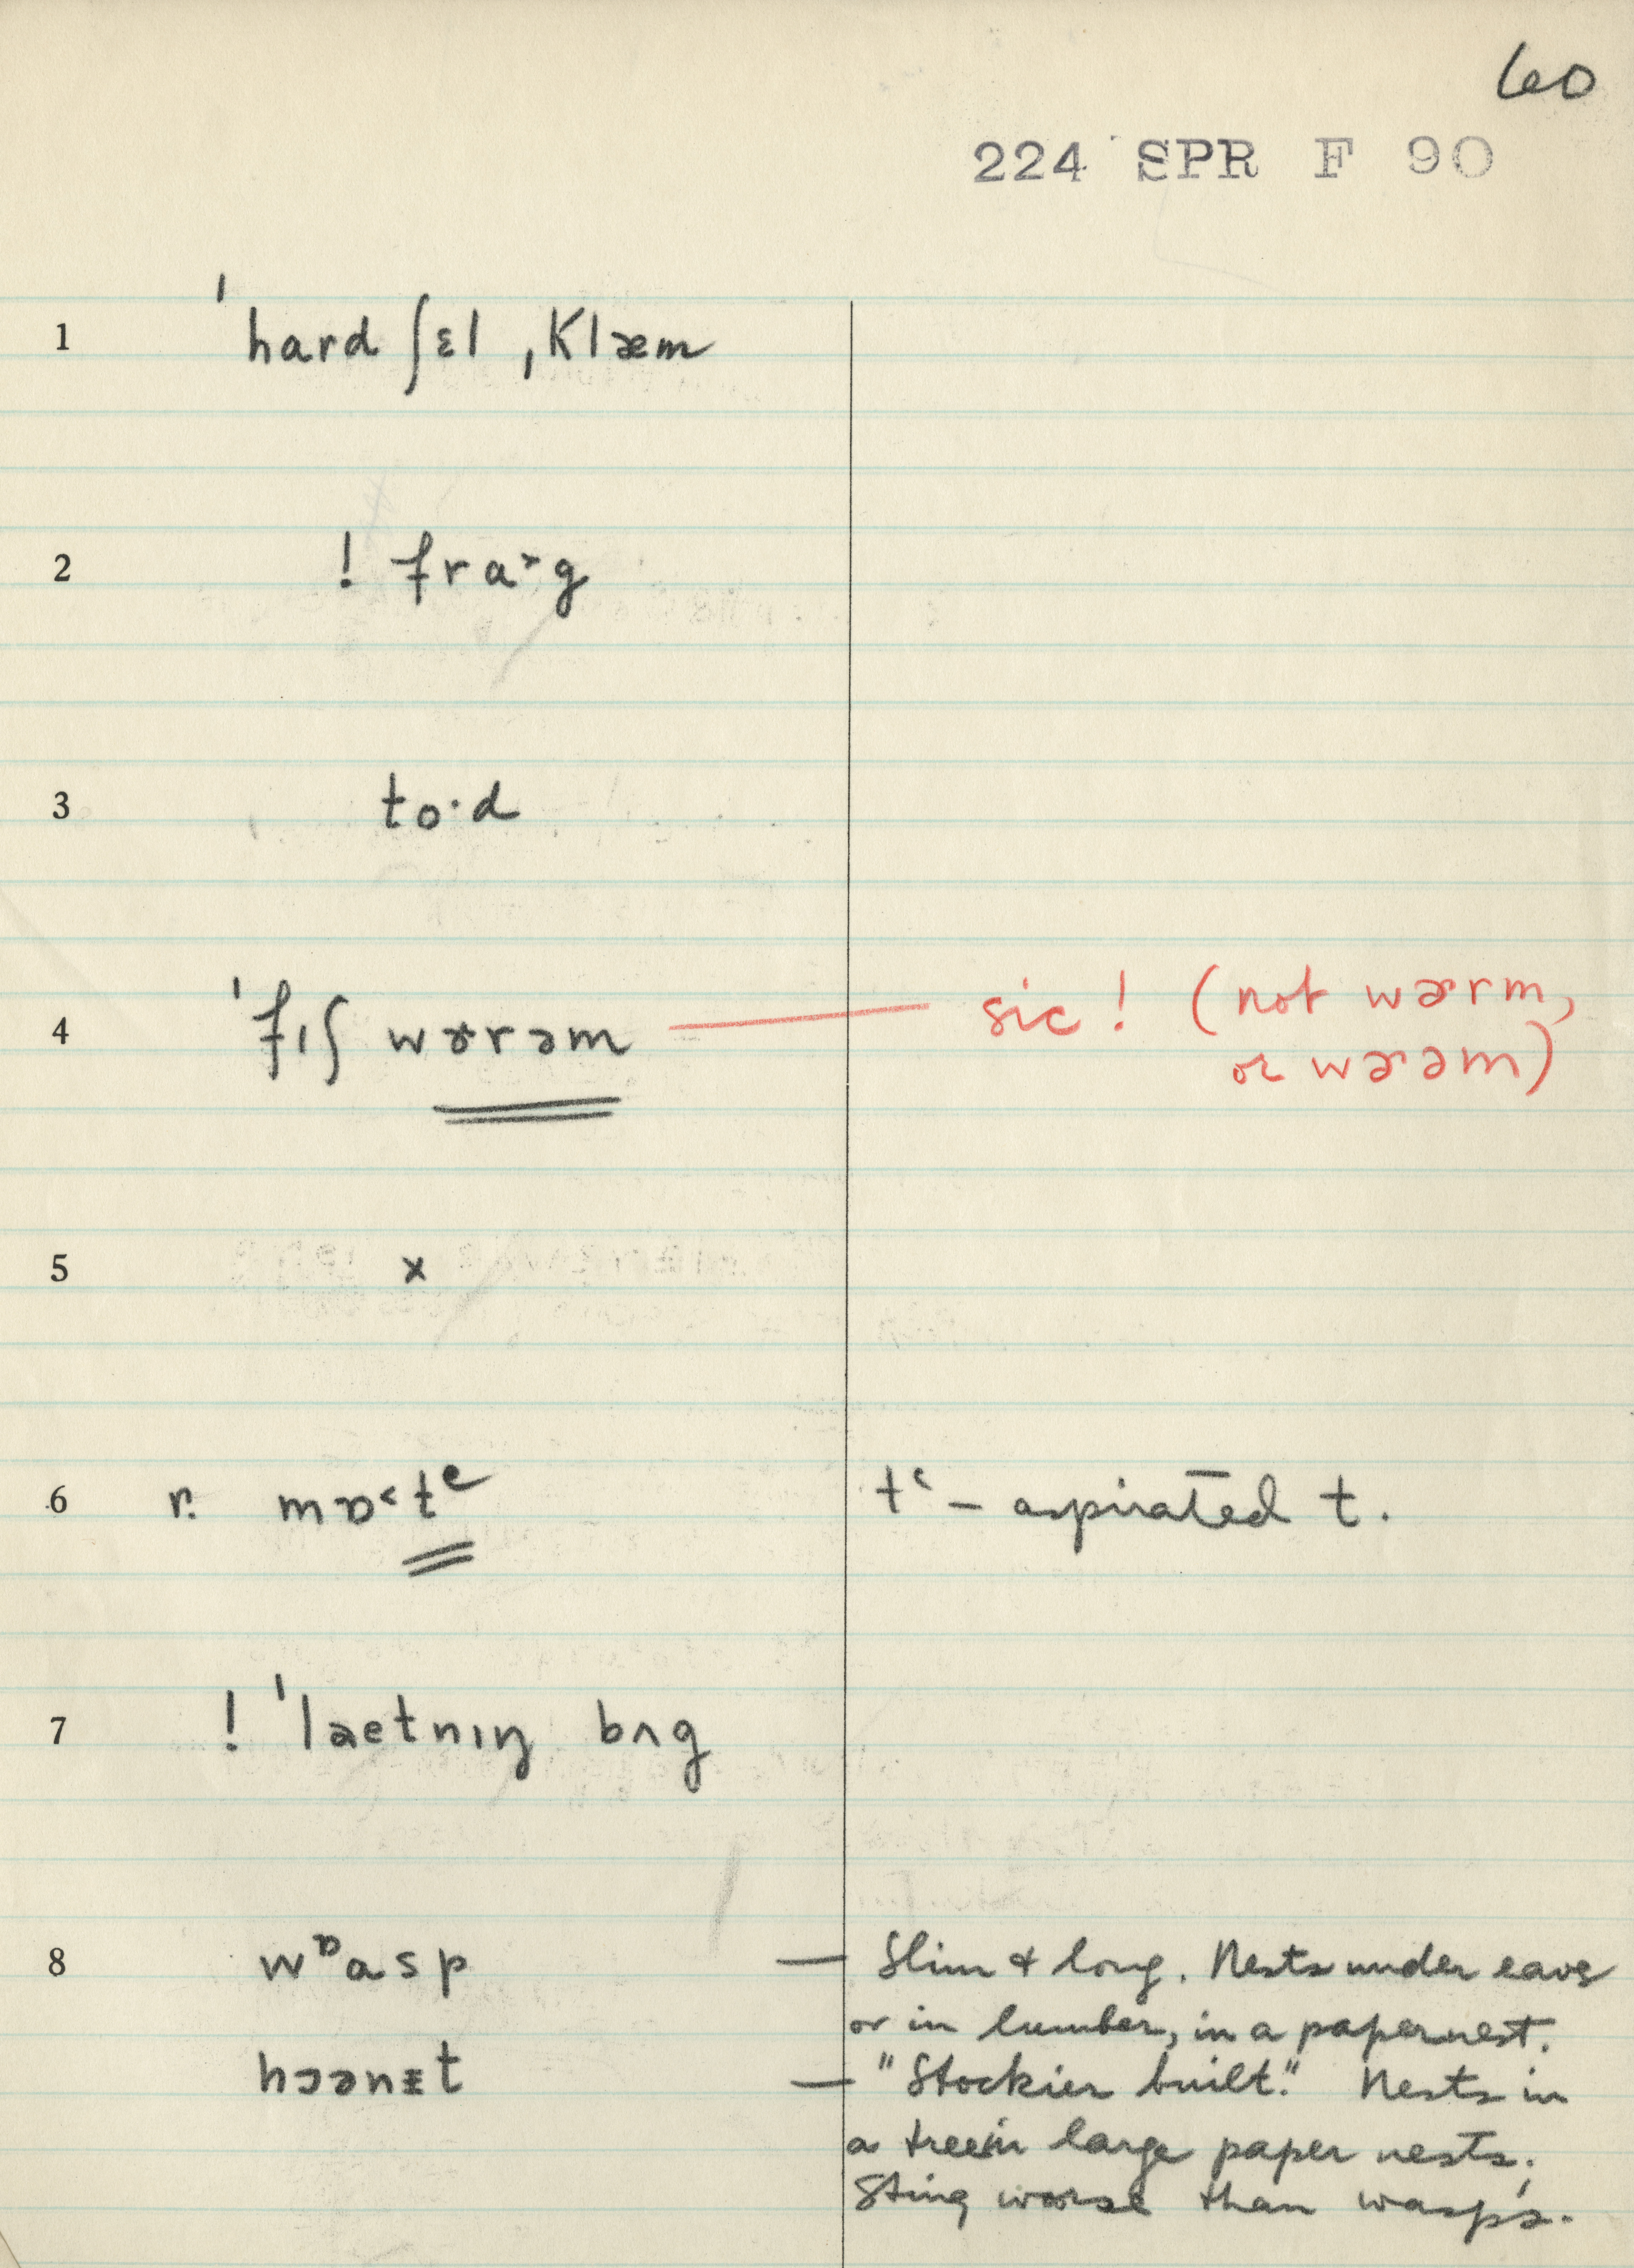 60
224 SPR F 90
1 ˈhard ʃɛl ˌklæm
2 ! fra˃g
3 to·d
4 ˈfɪʃ wɚrəm — sic! (not wɚrm,
or wɚəm)
5 x
6 r. mɒ˂tʿ tʿ – aspirated t.
7 ! ˈlaetnɪŋ bʌg
8 wᶛasp — Slim & long. Nests under eave
or in lumber, in a paper nest.
hɔənᵻt — "Stockier built." Nests in
a tree in large paper nests.
Sting worse than wasp's.